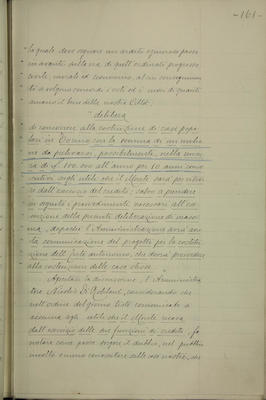 -161-
la quale deve segnare un ardito e generoso passo
in avanti nella via di quell'ordinato progresso
civile, morale ed economico, al cui conseguimen-
to si volgono concordi i voti ed i cuori di quanti
amano il bene della nostra Città;
delibera
di concorrere alla costruzione di case popo-
lari in Torino con la somma di un milio-
ne da prelevarsi, possibilmente, nella misu-
ra di L. 100.000 all'anno per 10 anni conse-
cutivi sugli utili che il Monte sarà per otte-
nere dall'esercizio del credito; salvo a prendere
in seguito i provvedimenti necessari all'ese-
cuzione della presente deliberazione di massi-
ma, dopoché l'Amministrazione avrà avu-
ta comunicazione del progetto per la costitu-
zione dell'Ente autonomo, che dovrà provvedere
alla costruzione delle case stesse.
Aperta la discussione, l'Amministra-
tore Nicolis di Robilant, considerando che
nell'ordine del giorno testé comunicato si
accenna agli utili che il Monte ricava
dall'esercizio delle sue funzioni di credito, fa
notare come possa sorgere il dubbio, nel pubblico
molto o meno conoscitore delle cose nostre, che